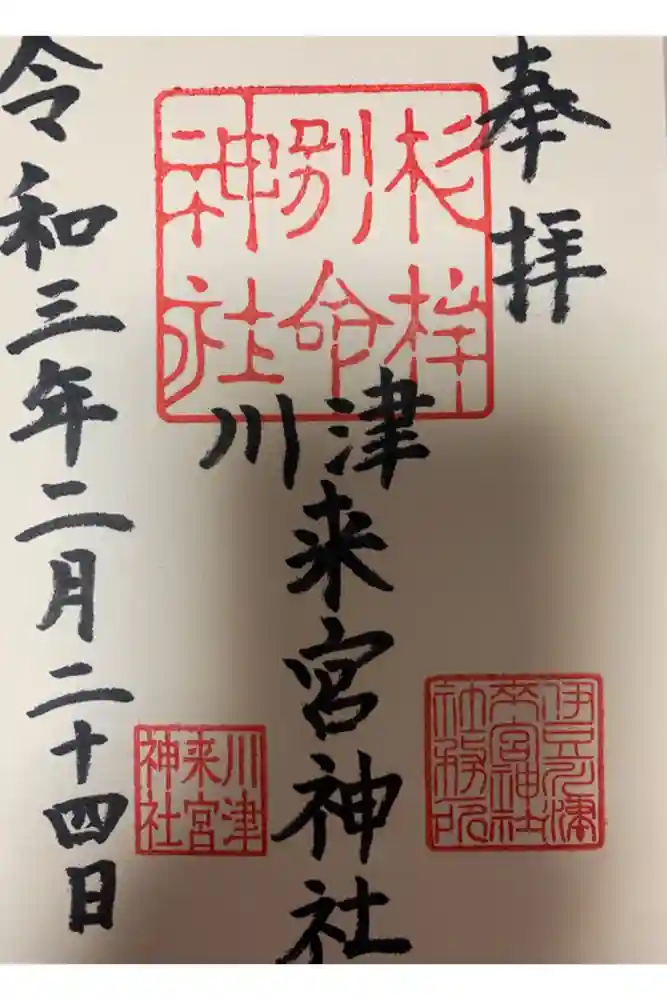 奉拝
杉桙
別命
神社
川津
来宮神社
伊豆川津
来宮神社
社務所
川津
来宮
神社
令和三年二月二十四日